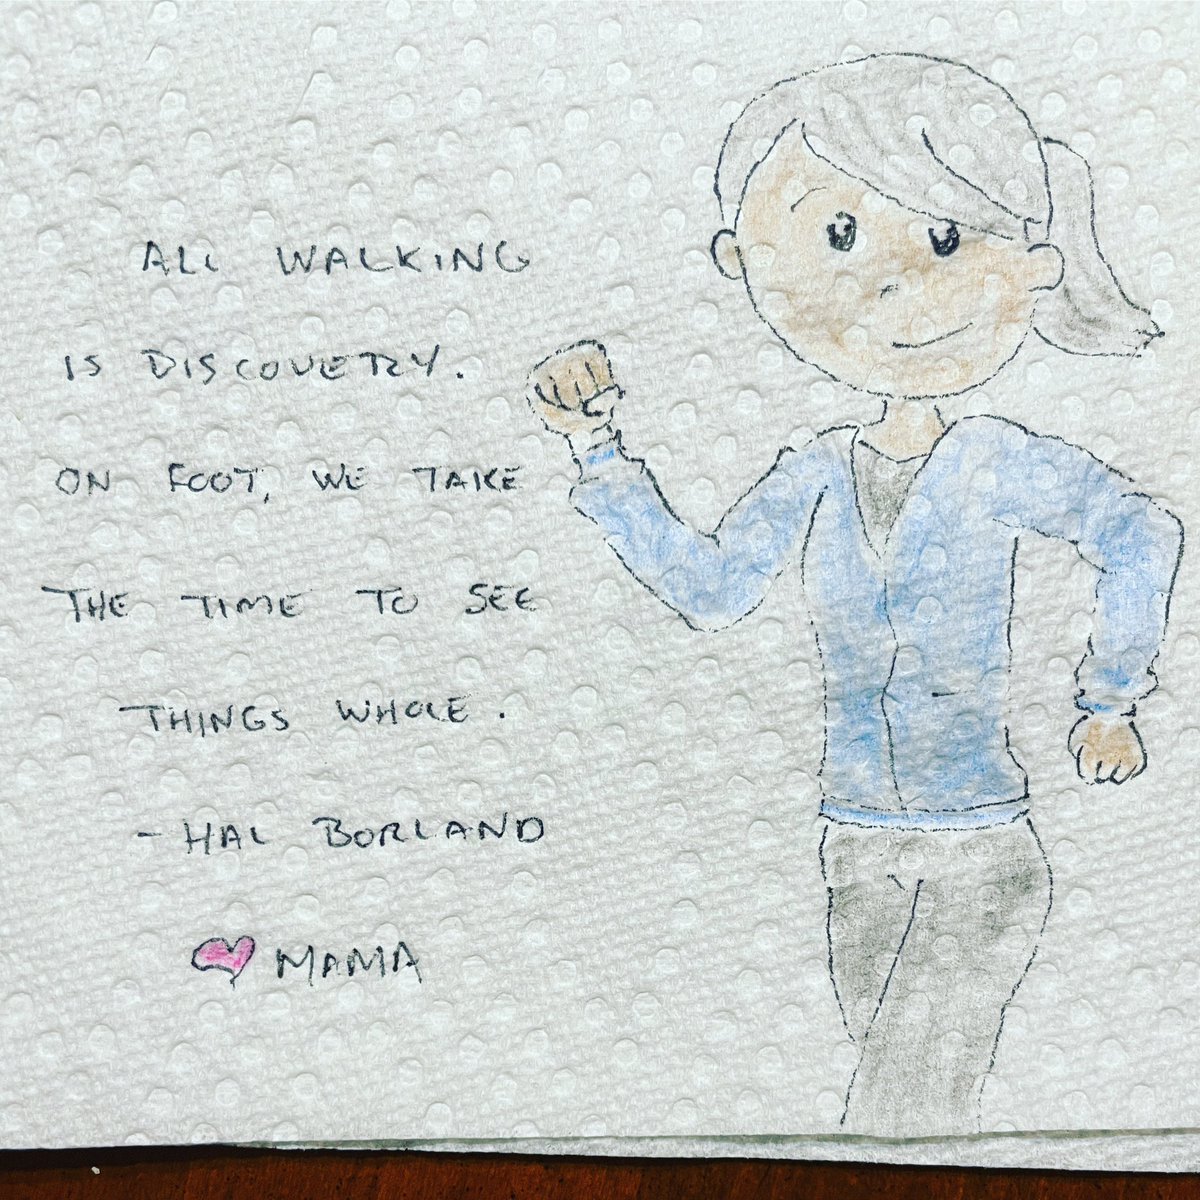 ALL WALKING
IS DISCOVERY.
ON FOOT, WE TAKE
THE TIME TO SEE
THINGS WHOLE.
- HAL BORLAND
MAMA